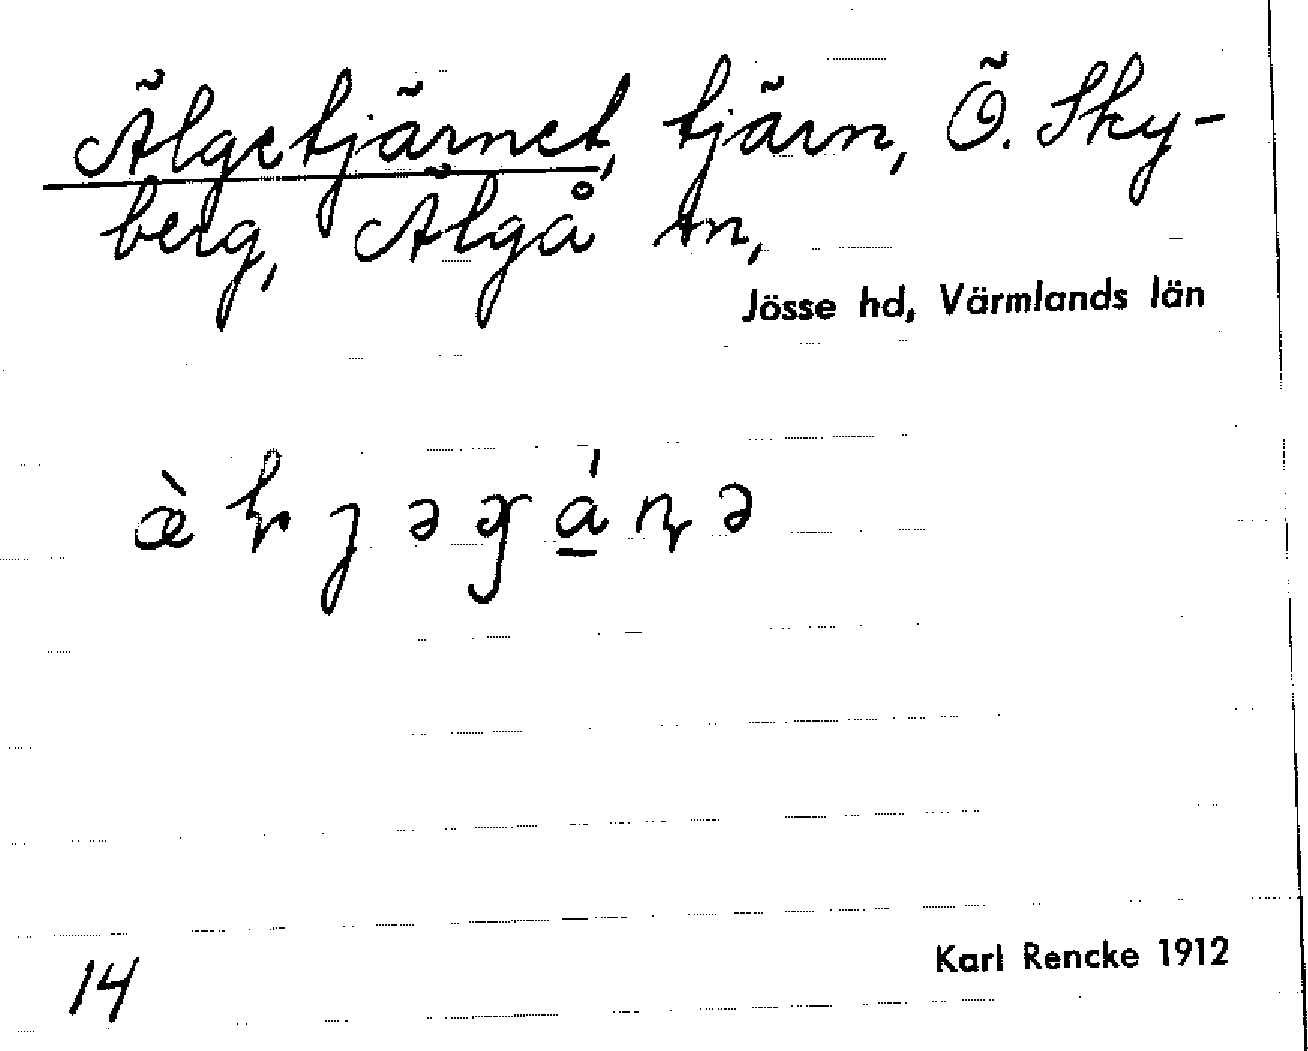 Älgetjärnet, tjärn, Ö. Sky-
berg, Älgå sn,
Jösse hd, Värmlands län
14
Karl Rencke 1912